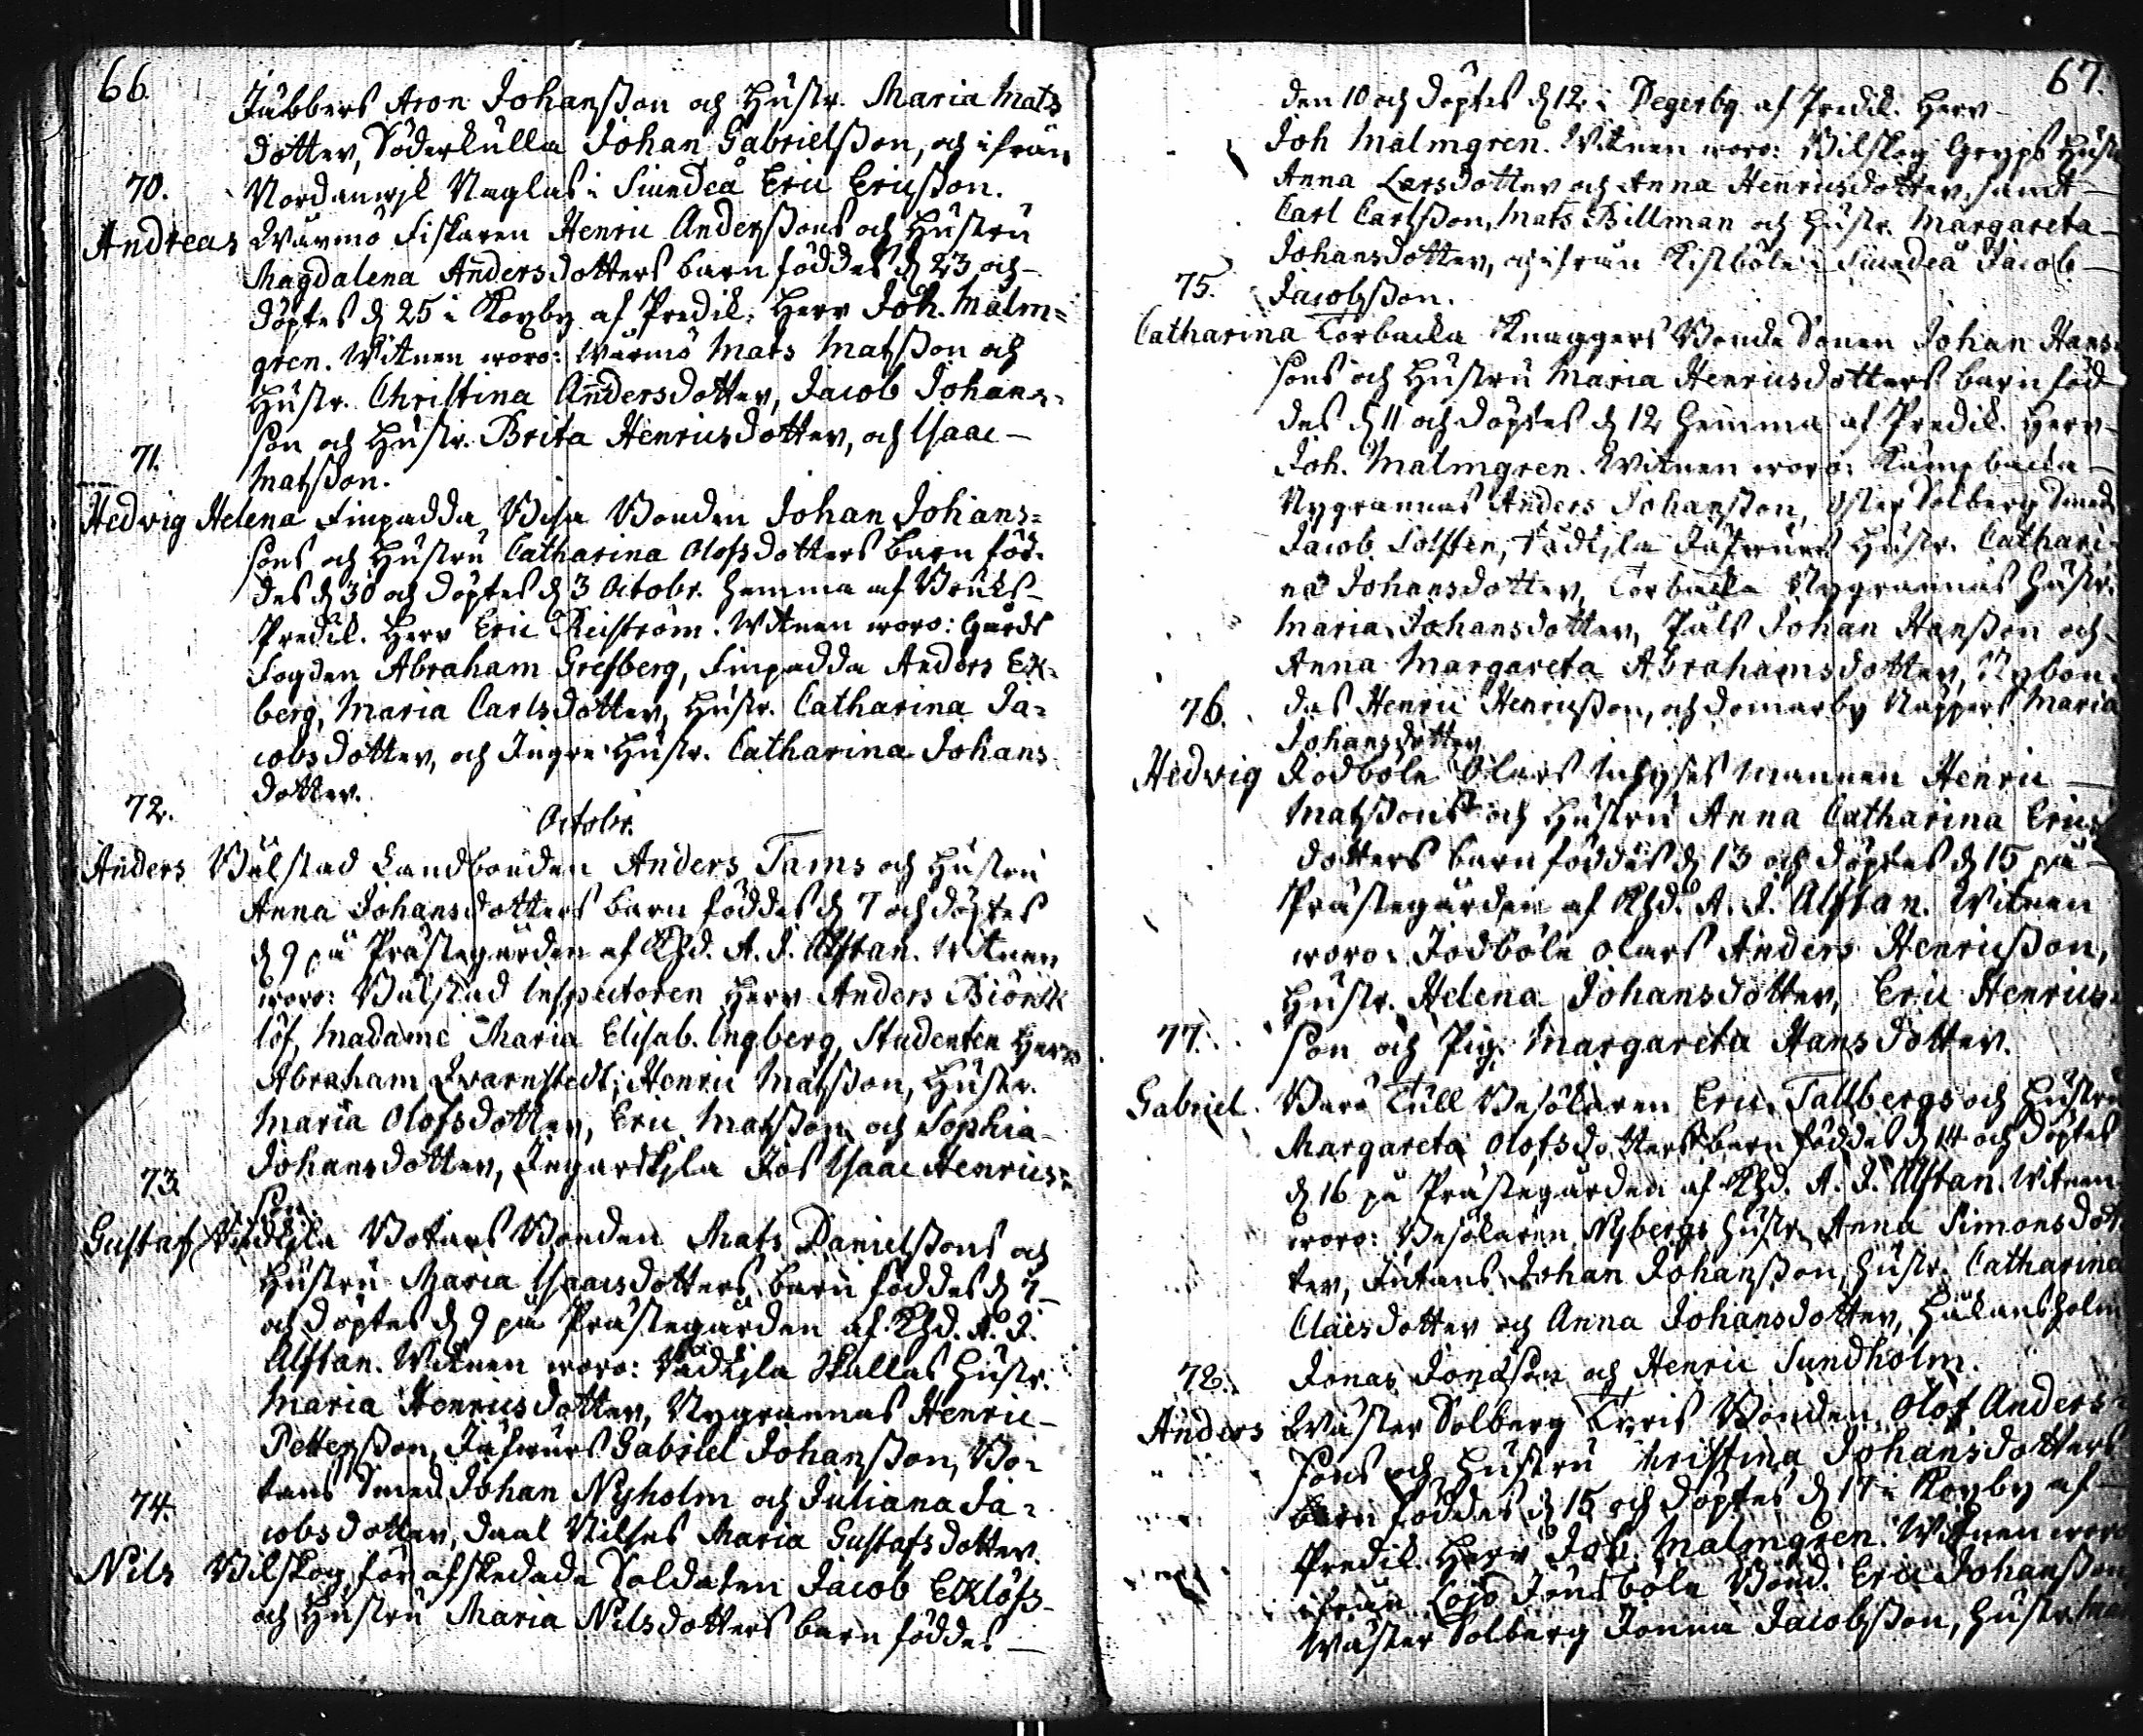 66.
Jubbers Aron Johansson och Hustr. Maria Mats
dotter, Söderkulla Johan Gabrielsson, och ifrån
70.
Nordanwik Naglas i Siundeå Eric Ericsson.
Andreas Wärmö Fiskaren Henric Anderssons och Hustru
Magdalena Andersdotters barn föddes d 23 och
döptes d 25 i Kopby af Predik. Herr Joh. Malm=
gren. Witnen woro: Wärmö Mats Matsson och
Hustr. Christina Andersdotter, Jacob Johans=
son och Hustr. Brita Henricsdotter, och Isaac
71.
Matsson.
Hedvig Helena Finpadda Bisa Bonden Johan Johans=
sons och Hustru Catharina Olofsdotters barn föd=
des d 30 och döptes d 3 Octobr. hemma af Bruks-
Predik. Herr Eric Reiström. Witnen woro: Gårds
fogden Abraham Grefberg, Finpadda Anders Ek=
berg, Maria Carlsdotter, Hustr. Catharina Ja=
cobsdotter, och Ingre Hustr. Catharina Johans
dotter.
72.
Octobr.
Anders Bålstad Landbonden Anders Tams och Hustru
Anna Johansdotters barn föddes d 7 och döptes
d 9 på Prästegården af Khd. A. J. Alftan. Witnen
woro: Bålstad Inspectoren Herr Anders Biörk
löf, Madame Maria Elisab. Ingberg, Studenten Herr
Abraham Qvarnstedt, Henric Matsson, Hustr.
Maria Olofsdotter, Eric Matsson och Sophia
Johansdotter, Ingarskila Jos Isaac Henrics=
73.
son.
Gustaf Wådkila Botars Bonden Mats Danielssons och
Hustru Maria Isaacsdotters barn föddes d 7
och döptes d 9 på Prästegården af Khd. A. J.
Alftan. Witnen woro: Vådkila Skallas Hustr.
Maria Henricsdotter, Nygrannas Henric
Pettersson, Jäfwurs Gabriel Johansson, Bo=
tans Smed Johan Nyholm och Juliana Ja=
74.
cobsdotter, Daal Nilses Maria Gustafsdotter.
Nils Bilskog för afskedade Soldaten Jacob Eklöfs
och Hustru Maria Nilsdotters barn föddes
67.
den 10 och döptes d 12 i Degerby af Predik. Herr
Joh Malmgren. Witnen woro: Bilskog Gryps Hustr
Anna Larsdotter och Anna Henricsdotter, samt
Carl Carlsson, Mats Billman och Hustr. Margareta
Johansdotter, och ifrån Kistböle i Siundeå Jacob
75.
Jacobsson.
Catharina Torbacka Knaggers Bonde Sonen Johan Hans=
sons och Hustru Maria Henricsdotters barn föd
des d 11 och döptes d 12 hemma af Predik. Herr
Joh. Malmgren. Witnen woro: Kämpbacka
Nygrannas Anders Johansson, Öster Solberg Smed
Jacob, Vådkila Jäfwurs Hustr. Cathari=
na Johansdotter, Torbacka Nygrannas Hustr.
Maria Johansdotter, Påls Johan Hansson och
Anna Margareta Abrahamsdotter, Nybon=
76.
das Henric Henricsson, och Domarby Nappers Maria
Johansdotter
Hedvig Jodböle Olars Inhyses Mannen Henric
Matssons och Hustru Anna Catharina Erics
dotters barn föddes d 13 och döptes d 15 på
Prästegården af Khd. A. J. Alftan. Witnen
woro: Jodböle Olars Anders Henricsson,
Hustr. Helena Johansdotter, Eric Henrics=
77.
son och Pig. Margareta Hansdotter.
Gabriel. Barö Tull Besökaren Eric Tallbergs och Hustru
Margareta Olofsdotters barn föddes d 14 och döptes
d 16 på Prästegården af Khd. A. J. Alftan. Witnen
woro: Besökaren Nybergs Hustr. Anna Simonsdot
ter, Johan Johansson, Hustr. Catharina
Claësdotter och Anna Johansdotter, Håkansholm
78.
Jonas Jonasson och Henric Sundholm.
Anders Wäster Solberg Bonden Olof Anders=
sons och Hustru Christina Johansdotters
barn föddes d 15 och döptes d 17 i Kopby af
Predik. Herr Joh. Malmgren. Witnen woro
ifrån Lojo Jönsböle Bond. Eric Johansson
Wäster Solberg Jacobsson, Hustr.